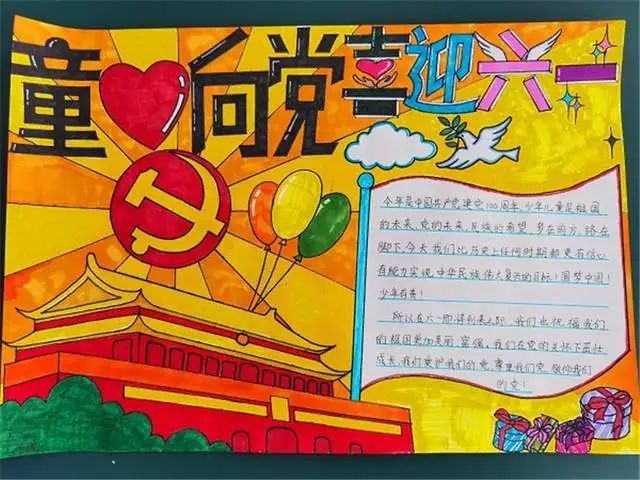 童向党喜迎六一
今年是中国共产党建党100周年,少年儿童是祖国
的未来,党的未来,民族的希望,梦在前方,路在
脚下,今天,我们比历史上任何时期都更有信心
有能力实现,中华民族伟大复兴的目标!圆梦中国!
少年有责!
所以在六一即将到来之际,我们也祝福我们
的祖国更加美丽,富强,我们在党的关怀下茁壮
成长,我们爱护我们的党,尊重我们党,敬仰我们
的党!